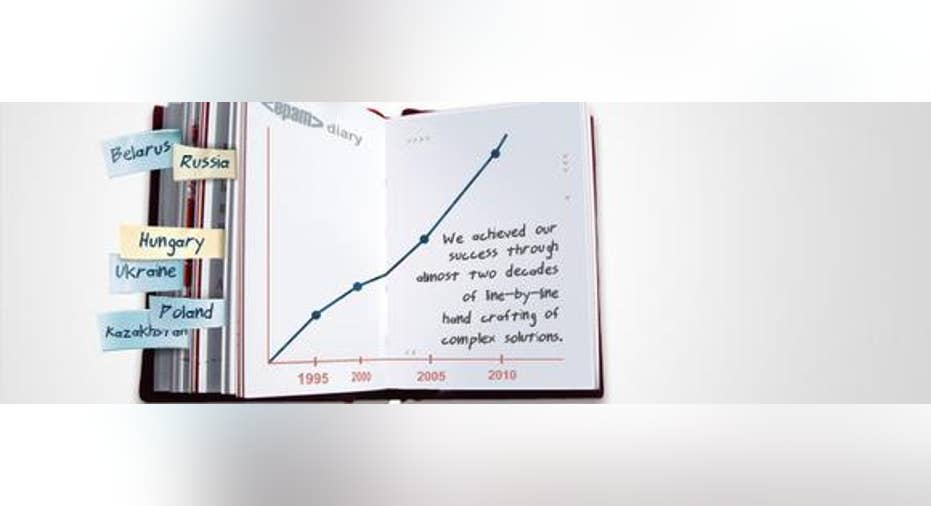 <epam> diary
Belarus
Russia
Hungary
Ukraine
Poland
Kazakhstan
We achieved our
success through
almost two decades
of line-by-line
hand crafting of
complex solutions.
1995 2000 2005 2010